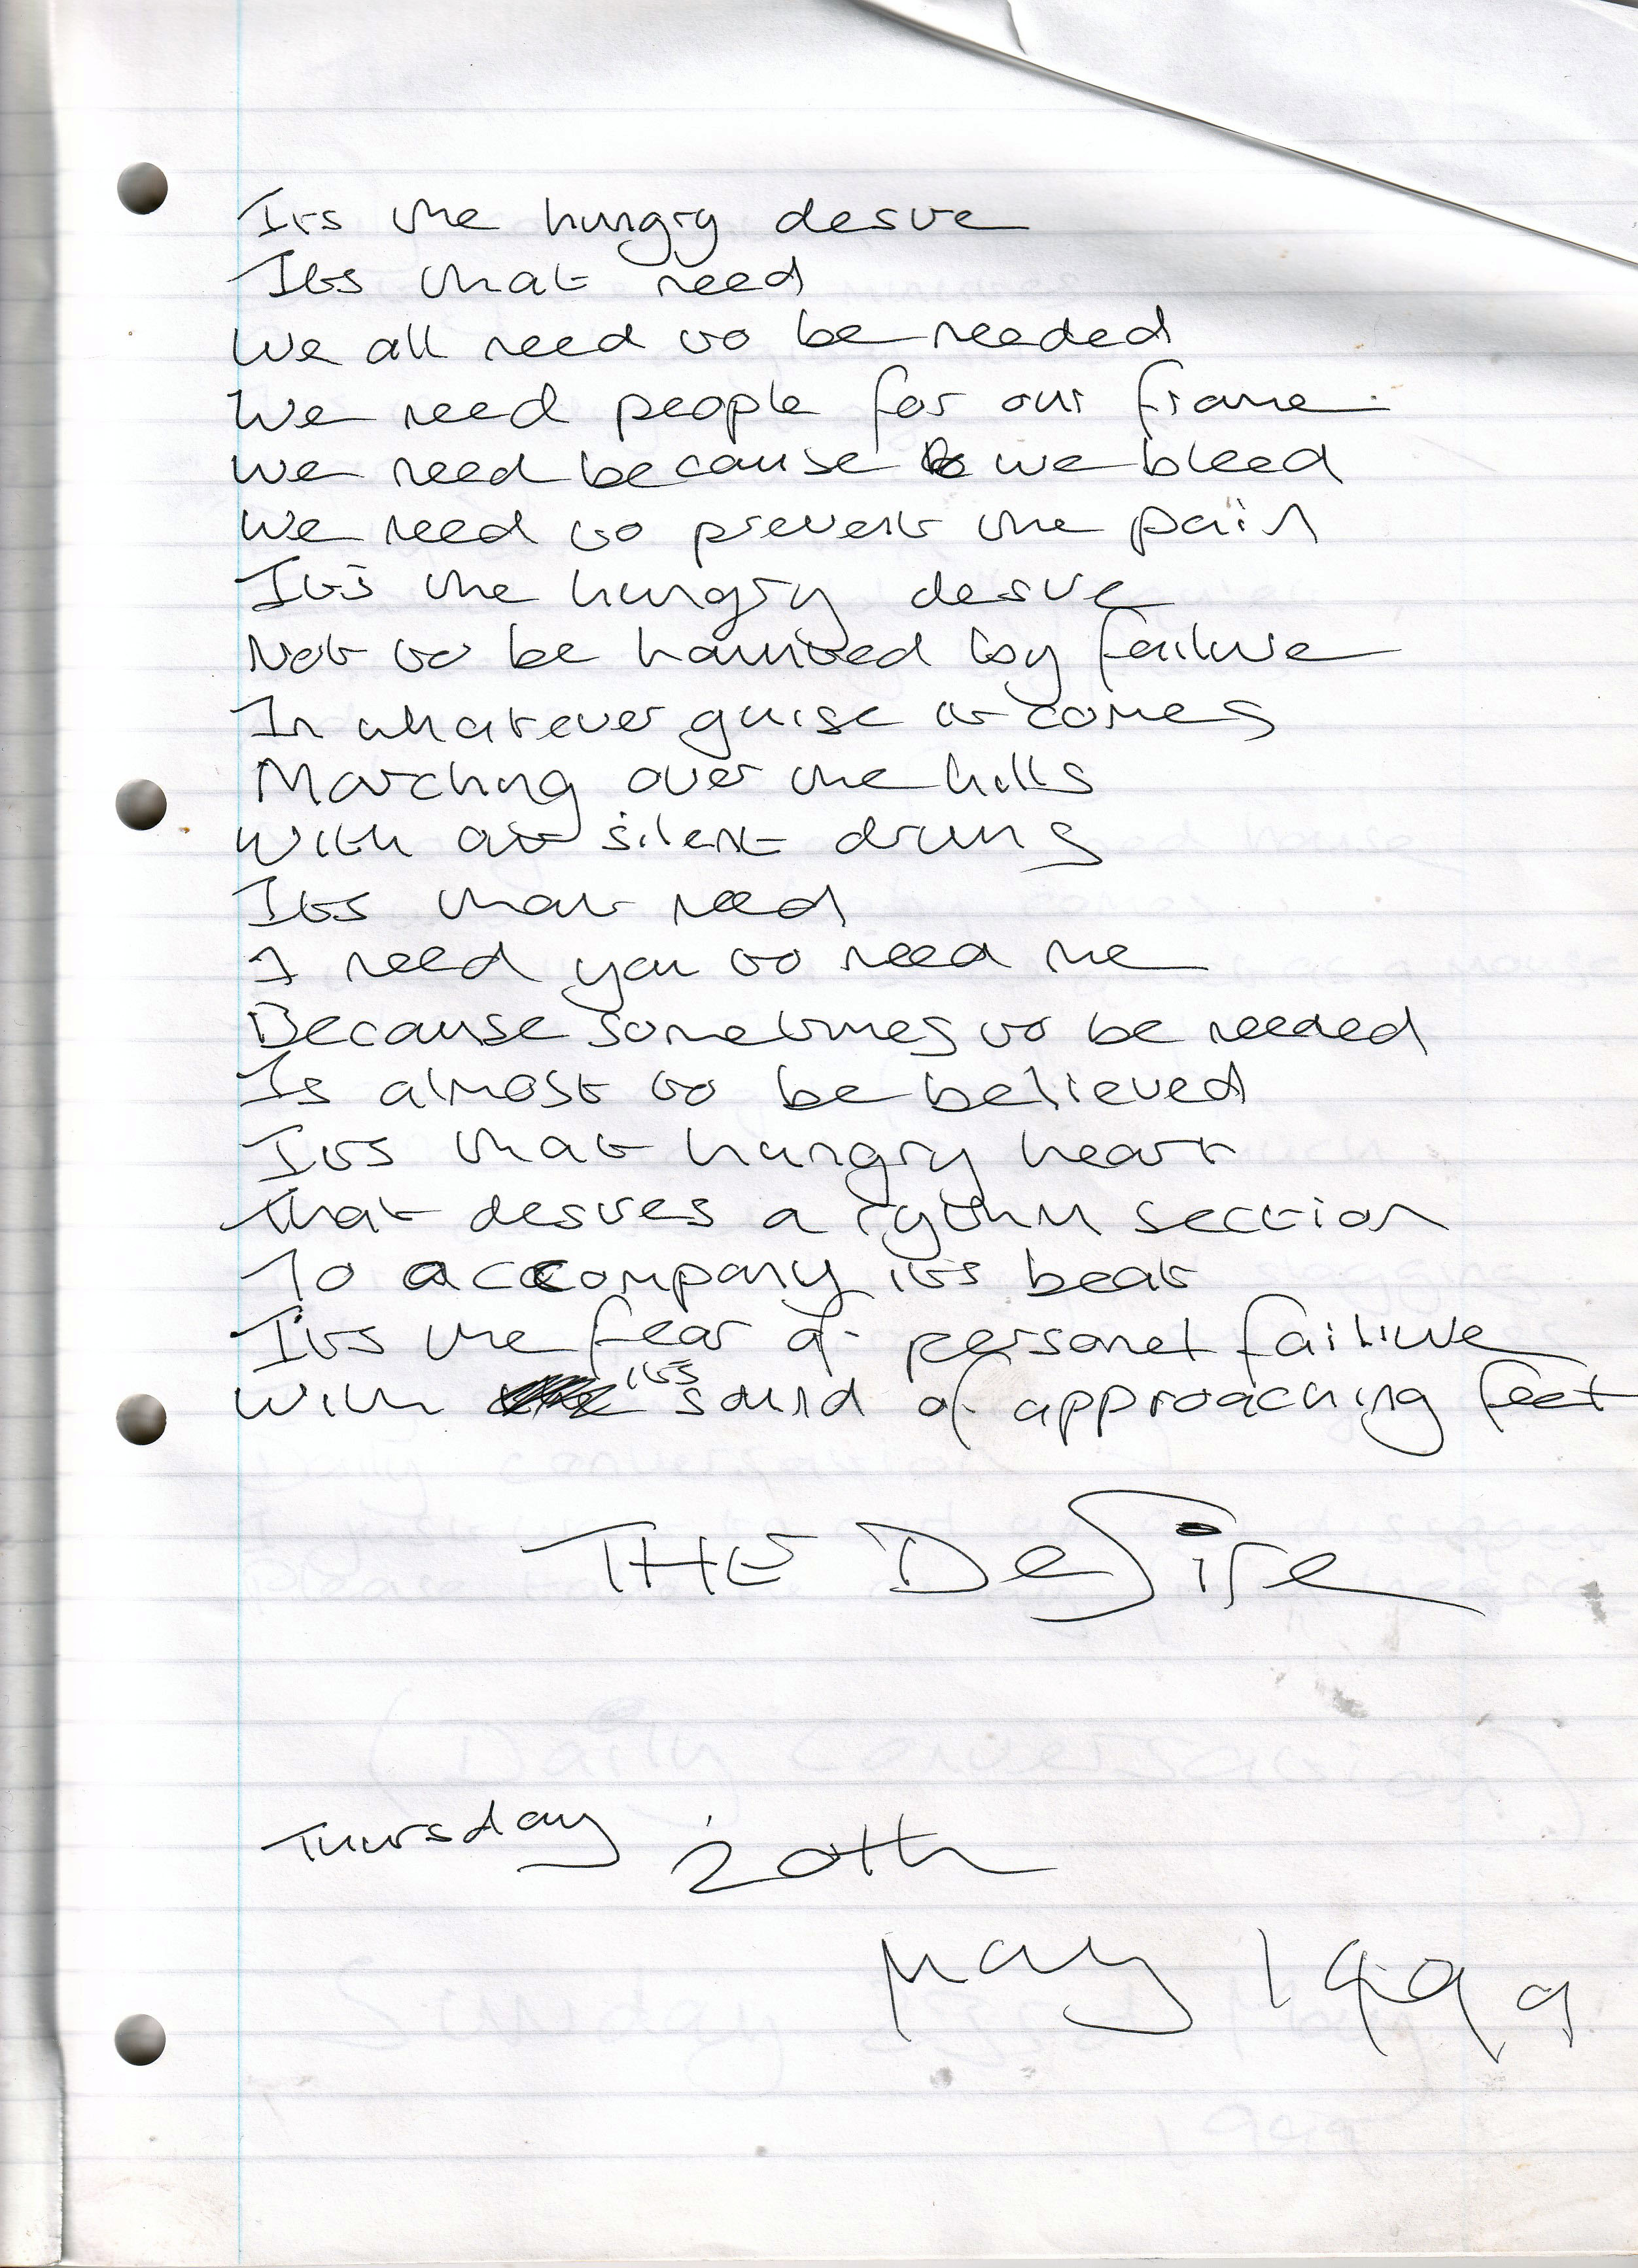 Its the hungry desire
Its that need
We all need to be needed
We need people for our frame
We need because we bleed
We need to prevent the pain
It's the hungry desire
Not to be haunted by failure
In whatever guise it comes
Marching over the hills
With silent drums
Its that need
I need you to need me
Because sometimes to be needed
Is almost to be believed
Its that hungry heart
That desires a rythm section
To accompany its beat
Its the fear of personel failure
With its sound of approaching feet
THE DeSire
Thursday 20th
May 1999